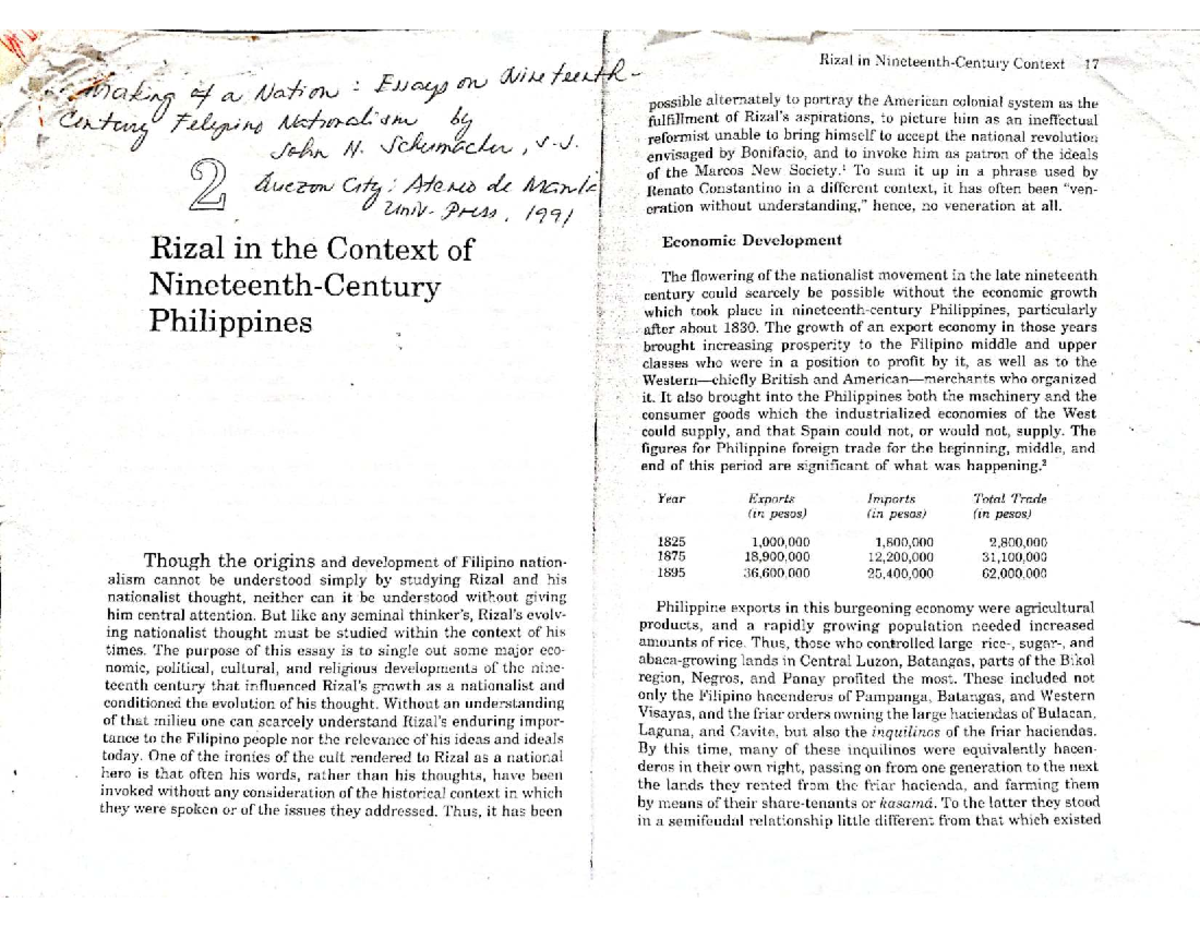 Making of a Nation : Essays on Nineteenth-
Century Filipino Nationalism by
John N. Schumacher, S.J.
Quezon City: Ateneo de Manila
Univ. Press, 1991
2
Rizal in the Context of
Nineteenth-Century
Philippines
Though the origins and development of Filipino nation-
alism cannot be understood simply by studying Rizal and his
nationalist thought, neither can it be understood without giving
him central attention. But like any seminal thinker's, Rizal's evolv-
ing nationalist thought must be studied within the context of his
times. The purpose of this essay is to single out some major eco-
nomic, political, cultural, and religious developments of the nine-
teenth century that influenced Rizal's growth as a nationalist and
conditioned the evolution of his thought. Without an understanding
of that milieu one can scarcely understand Rizal's enduring impor-
tance to the Filipino people nor the relevance of his ideas and ideals
today. One of the ironies of the cult rendered to Rizal as a national
hero is that often his words, rather than his thoughts, have been
invoked without any consideration of the historical context in which
they were spoken or of the issues they addressed. Thus, it has been
Rizal in Nineteenth-Century Context 17
possible alternately to portray the American colonial system as the
fulfillment of Rizal's aspirations, to picture him as an ineffectual
reformist unable to bring himself to accept the national revolution
envisaged by Bonifacio, and to invoke him as patron of the ideals
of the Marcos New Society.¹ To sum it up in a phrase used by
Renato Constantino in a different context, it has often been "ven-
eration without understanding," hence, no veneration at all.
Economic Development
The flowering of the nationalist movement in the late nineteenth
century could scarcely be possible without the economic growth
which took place in nineteenth-century Philippines, particularly
after about 1830. The growth of an export economy in those years
brought increasing prosperity to the Filipino middle and upper
classes who were in a position to profit by it, as well as to the
Western—chiefly British and American—merchants who organized
it. It also brought into the Philippines both the machinery and the
consumer goods which the industrialized economies of the West
could supply, and that Spain could not, or would not, supply. The
figures for Philippine foreign trade for the beginning, middle, and
end of this period are significant of what was happening.²
Year Exports Imports Total Trade
(in pesos) (in pesos) (in pesos)
1825 1,000,000 1,800,000 2,800,000
1875 18,900,000 12,200,000 31,100,000
1895 36,600,000 25,400,000 62,000,000
Philippine exports in this burgeoning economy were agricultural
products, and a rapidly growing population needed increased
amounts of rice. Thus, those who controlled large rice-, sugar-, and
abaca-growing lands in Central Luzon, Batangas, parts of the Bikol
region, Negros, and Panay profited the most. These included not
only the Filipino hacenderos of Pampanga, Batangas, and Western
Visayas, and the friar orders owning the large haciendas of Bulacan,
Laguna, and Cavite, but also the inquilinos of the friar haciendas.
By this time, many of these inquilinos were equivalently hacen-
deros in their own right, passing on from one generation to the next
the lands they rented from the friar hacienda, and farming them
by means of their share-tenants or kasamá. To the latter they stood
in a semifeudal relationship little different from that which existed